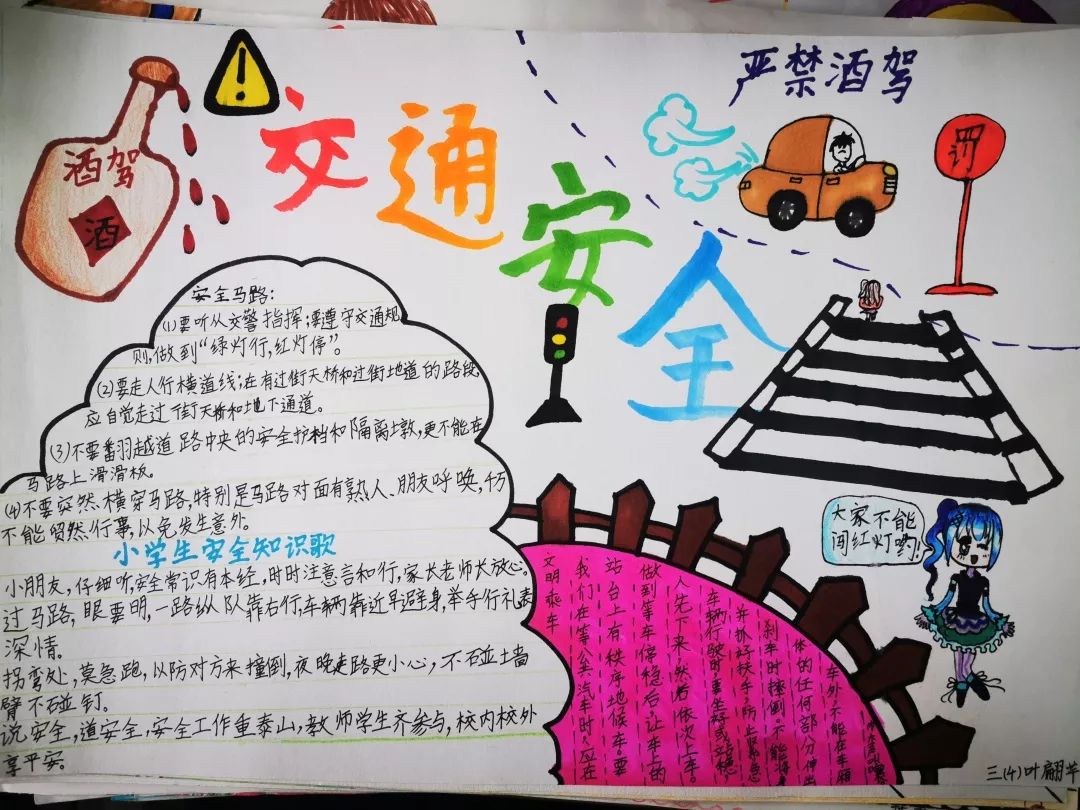 严禁酒驾
交通安全
酒驾
酒
罚
安全马路:
(1)要听从交警指挥;要遵守交通规
则,做到“绿灯行,红灯停”。
(2)要走人行横道线;在有过街天桥和过街地道的路段,
应自觉走过街天桥和地下通道。
(3)不要翻越道路中央的安全护栏和隔离墩,更不能在
马路上滑滑板。
(4)不要突然横穿马路,特别是马路对面有熟人、朋友呼唤,千万
不能贸然行事,以免发生意外。
小学生安全知识歌
小朋友,仔细听,安全常识有本经,时时注意言和行,家长老师长放心。
过马路,眼要明,一路纵队靠右行,车辆靠近早避身,举手行礼表
深情。
拐弯处,莫急跑,以防对方来撞倒,夜晚走路更小心,不碰土墙
臂不碰钉。
说安全,道安全,安全工作重泰山,教师学生齐参与,校内校外
享平安。
大家不能
闯红灯哟!
文明乘车
我们在等公共汽车时,应在
站台上有秩序地候车。要
做到等车停稳后让车上的
人先下来,然后依次上车。
车辆行驶时要坐好或站稳,
并抓好扶手,防止紧急
刹车时摔倒。不能将身
体的任何部分伸出
车外,不能在车厢
三(4)叶翩芊